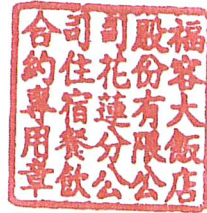 福容大飯店
股份有限公
司花蓮分公
司住宿餐飲
合約專用章